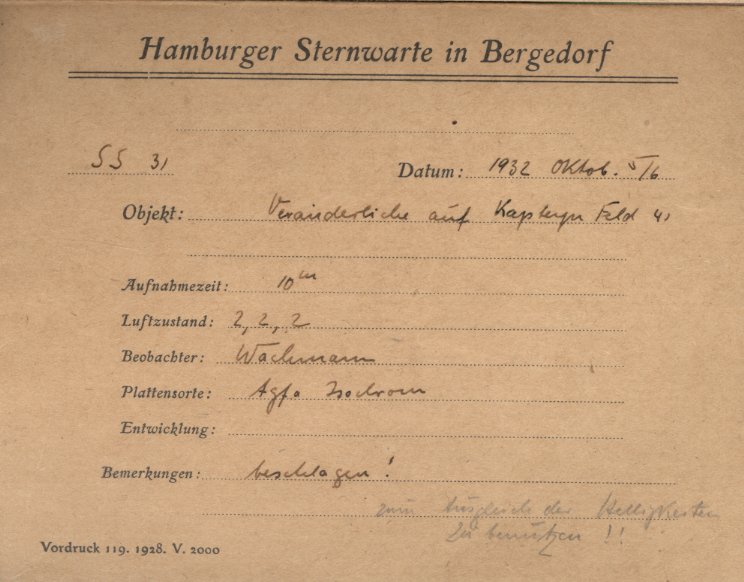 Hamburger Sternwarte in Bergedorf
SS 31
Datum: 1932 Oktob. 5/6
Objekt: Veränderliche auf Kapteyn Feld 41
Aufnahmezeit: 10ᵐ
Luftzustand: 2, 2, 2
Beobachter: Wachmann
Plattensorte: Agfa Isochrom
Entwicklung:
Bemerkungen: beschlagen!
zum Ausgleich der Helligkeiten
zu benutzen!!
Vordruck 119. 1928. V. 2000